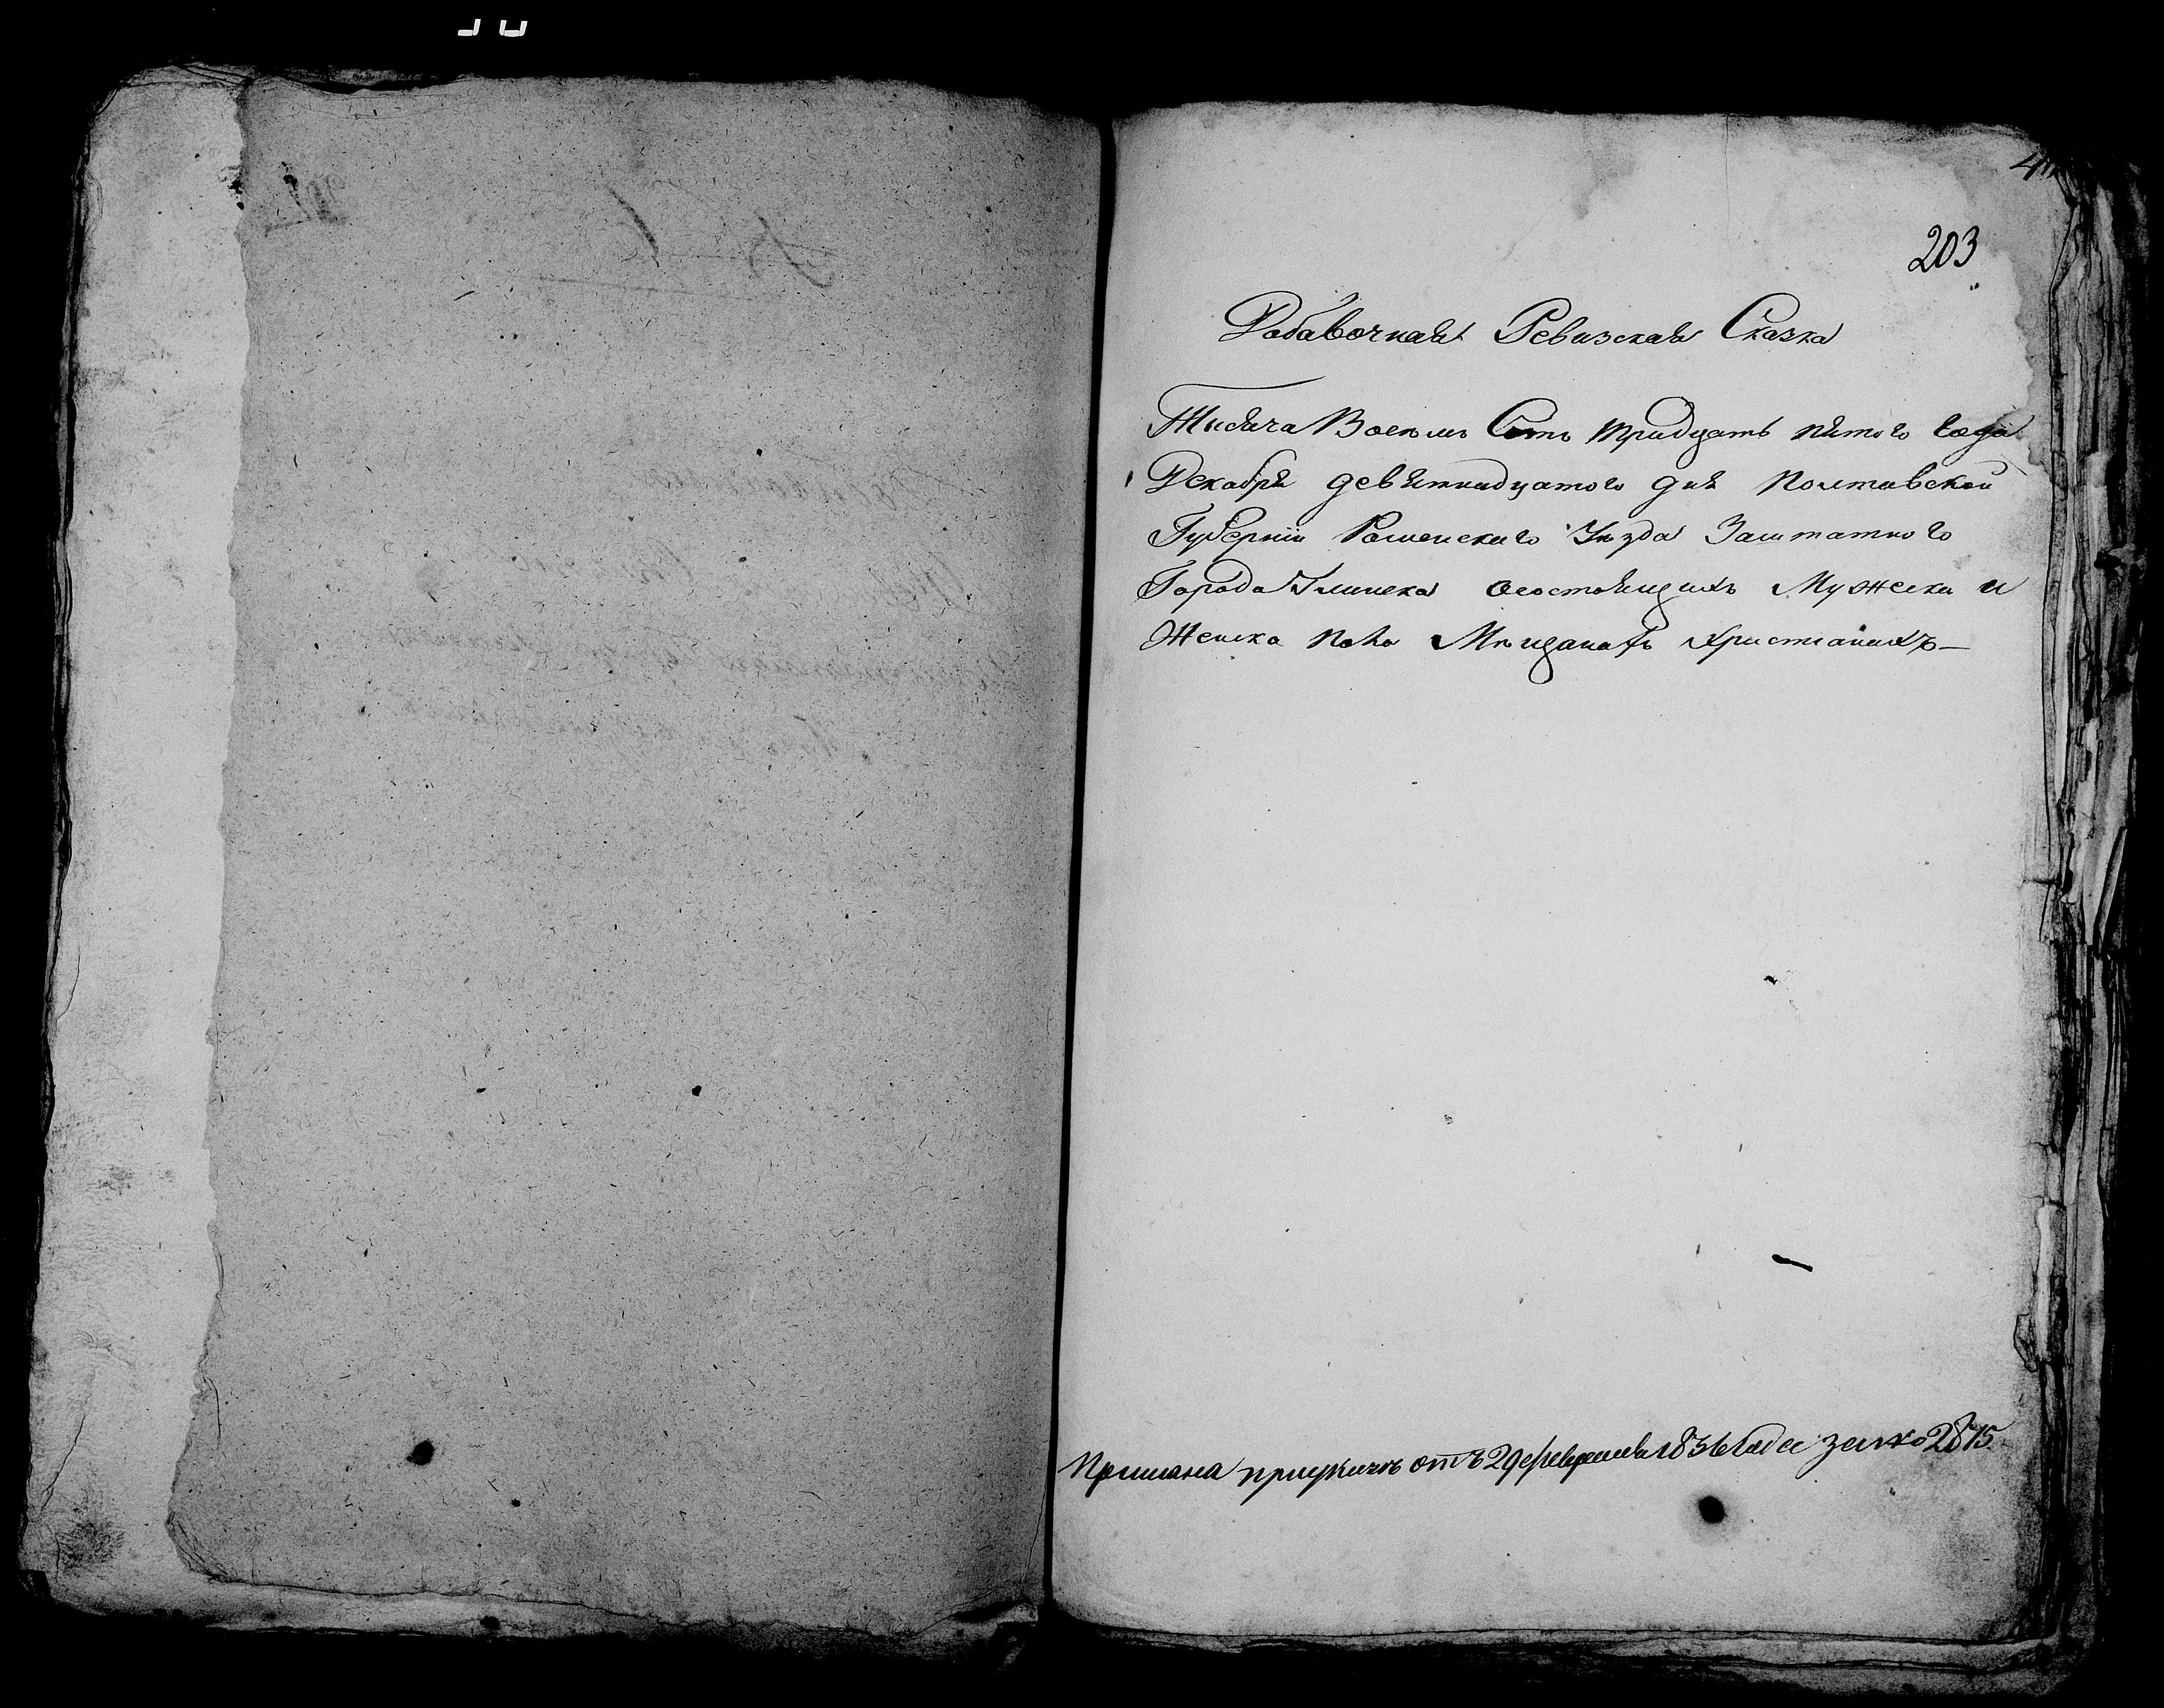 203
Добавочная Ревизская Сказка
Тисяча Восемь Сотъ тридцать пятого года
Декабря девятнадцатого дня Полтавской
Губерніи Роменского Уѣзда Заштатного
Города Глинска осостоящихъ Мужеска и
Женска пола Мѣщанахъ христианахъ —
при отъ 29 февраля 1836 года за № 2875